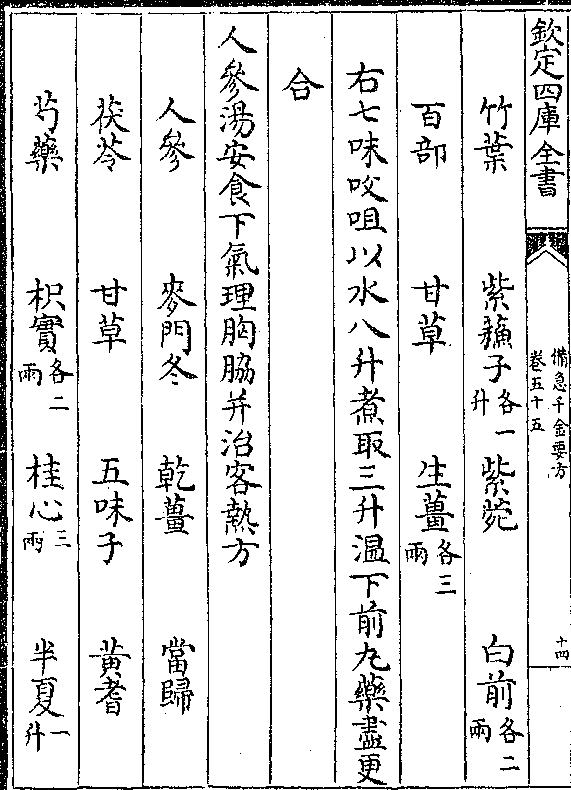 欽定四庫全書
備急千金要方
卷五十五
十四
竹葉 紫蘓子各一升 紫菀 白前各二兩
百部 甘草 生薑各三兩
右七味㕮咀以水八升煮取三升温下前丸藥盡更
合
人參湯安食下氣理胸脇并治客熱方
人參 麥門冬 乾薑 當歸
茯苓 甘草 五味子 黃耆
芍藥 枳實各二兩 桂心三兩 半夏一升